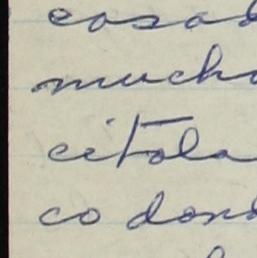 cosas
mucho
citola
co dond